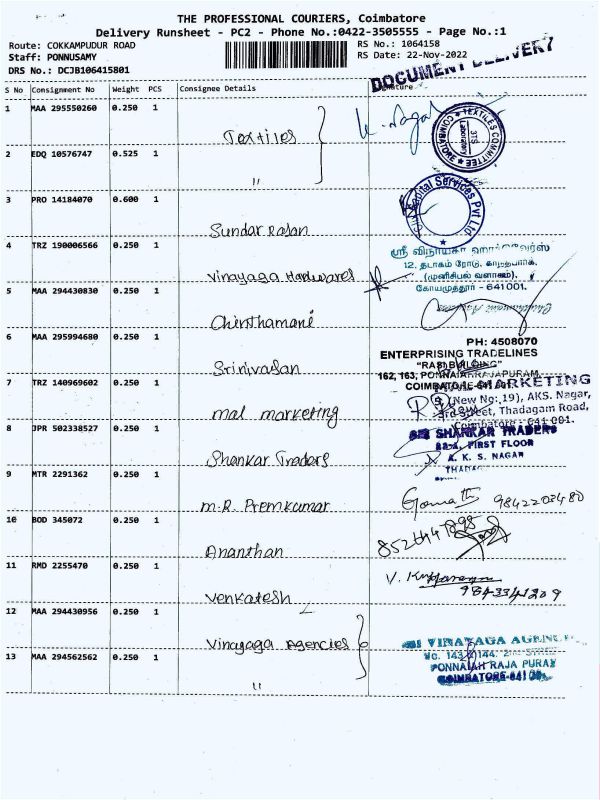 THE PROFESSIONAL COURIERS, Coimbatore
Delivery Runsheet - PC2 - Phone No.:0422-3505555 - Page No.:1
Route: COKKAMPUDUR ROAD
RS No.: 1064158
Staff: PONNUSAMY
RS Date: 22-Nov-2022
DRS No.: DCJB106415801
DOCUMENT DELIVERY
S No Consignment No Weight PCS Consignee Details Signature
1 MAA 295550260 0.250 1
Textiles
TEXTILES COMMITTEE
COIMBATORE
Laboratory
2 EDQ 10576747 0.525 1
"
3 PRO 14184070 0.600 1
Sundar Rajan
Capital Services Pvt Ltd
4 TRZ 190006566 0.250 1
Vinayaga Hardwares
ஸ்ரீ விநாயகா
12, தடாகம் ரோடு,
(முனிசிபல் வளாகம்),
கோயமுத்தூர் - 641 001.
5 MAA 294430830 0.250 1
Chinthamani
6 MAA 295994680 0.250 1
Srinivasan
PH: 4508070
ENTERPRISING TRADELINES
"RASI BUILDING"
162, 163, PONNAIAHRAJAPURAM,
COIMBATORE-641 001
7 TRZ 140969602 0.250 1
mal marketing
MARKETING
(New No:,19), AKS. Nagar,
3rd Street, Thadagam Road,
Coimbatore - 641 001.
8 JPR 502338527 0.250 1
Shankar Traders
SHANKAR TRADERS
22-A, FIRST FLOOR
A. K. S. NAGAR
9 MTR 2291362 0.250 1
M.R. Premkumar
Gomathi 9842203480
10 BOD 345072 0.250 1
Ananthan
11 RMD 2255470 0.250 1
Venkatesh
9843341209
12 MAA 294430956 0.250 1
Vinayaga Agencies
VINAYAGA AGENC
No. 143/144. 2nd STREET
PONNAIAH RAJA PURAM
COIMBATORE-641 001.
13 MAA 294562562 0.250 1
"